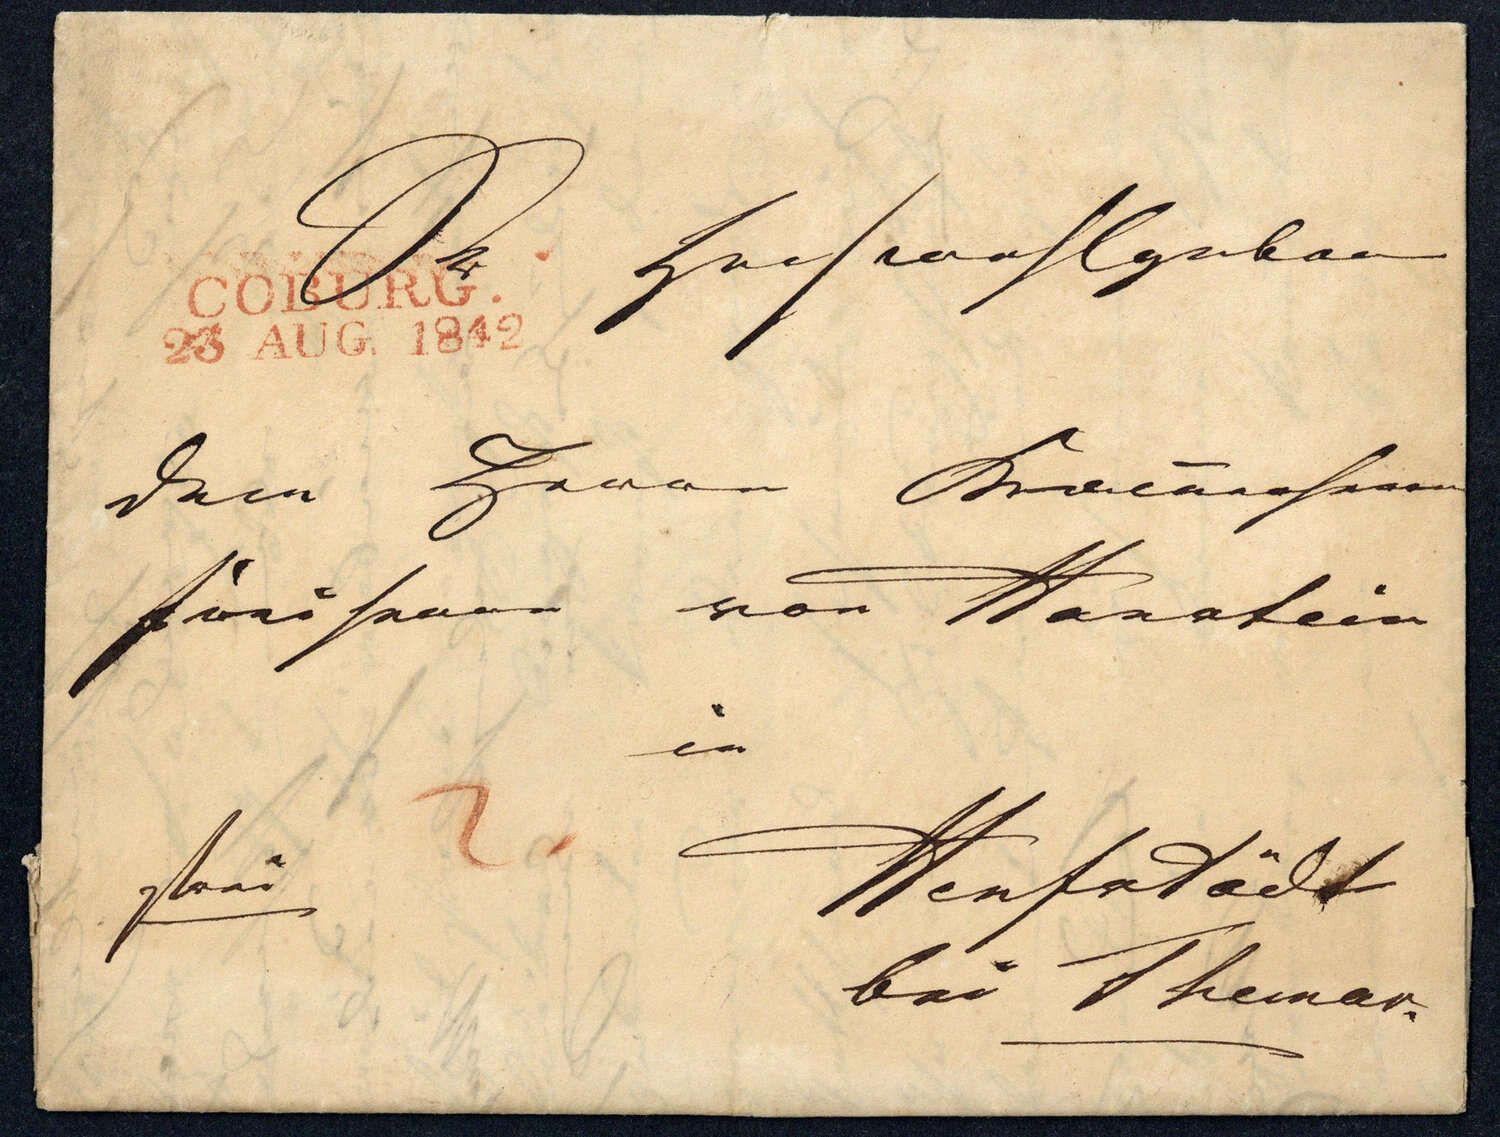 Sr Hochwohlgeboren
COBURG.
23 AUG. 1842
dem Herrn
Freiherrn von Hanstein
in
2
frei
Henfstädt
bei Themar.